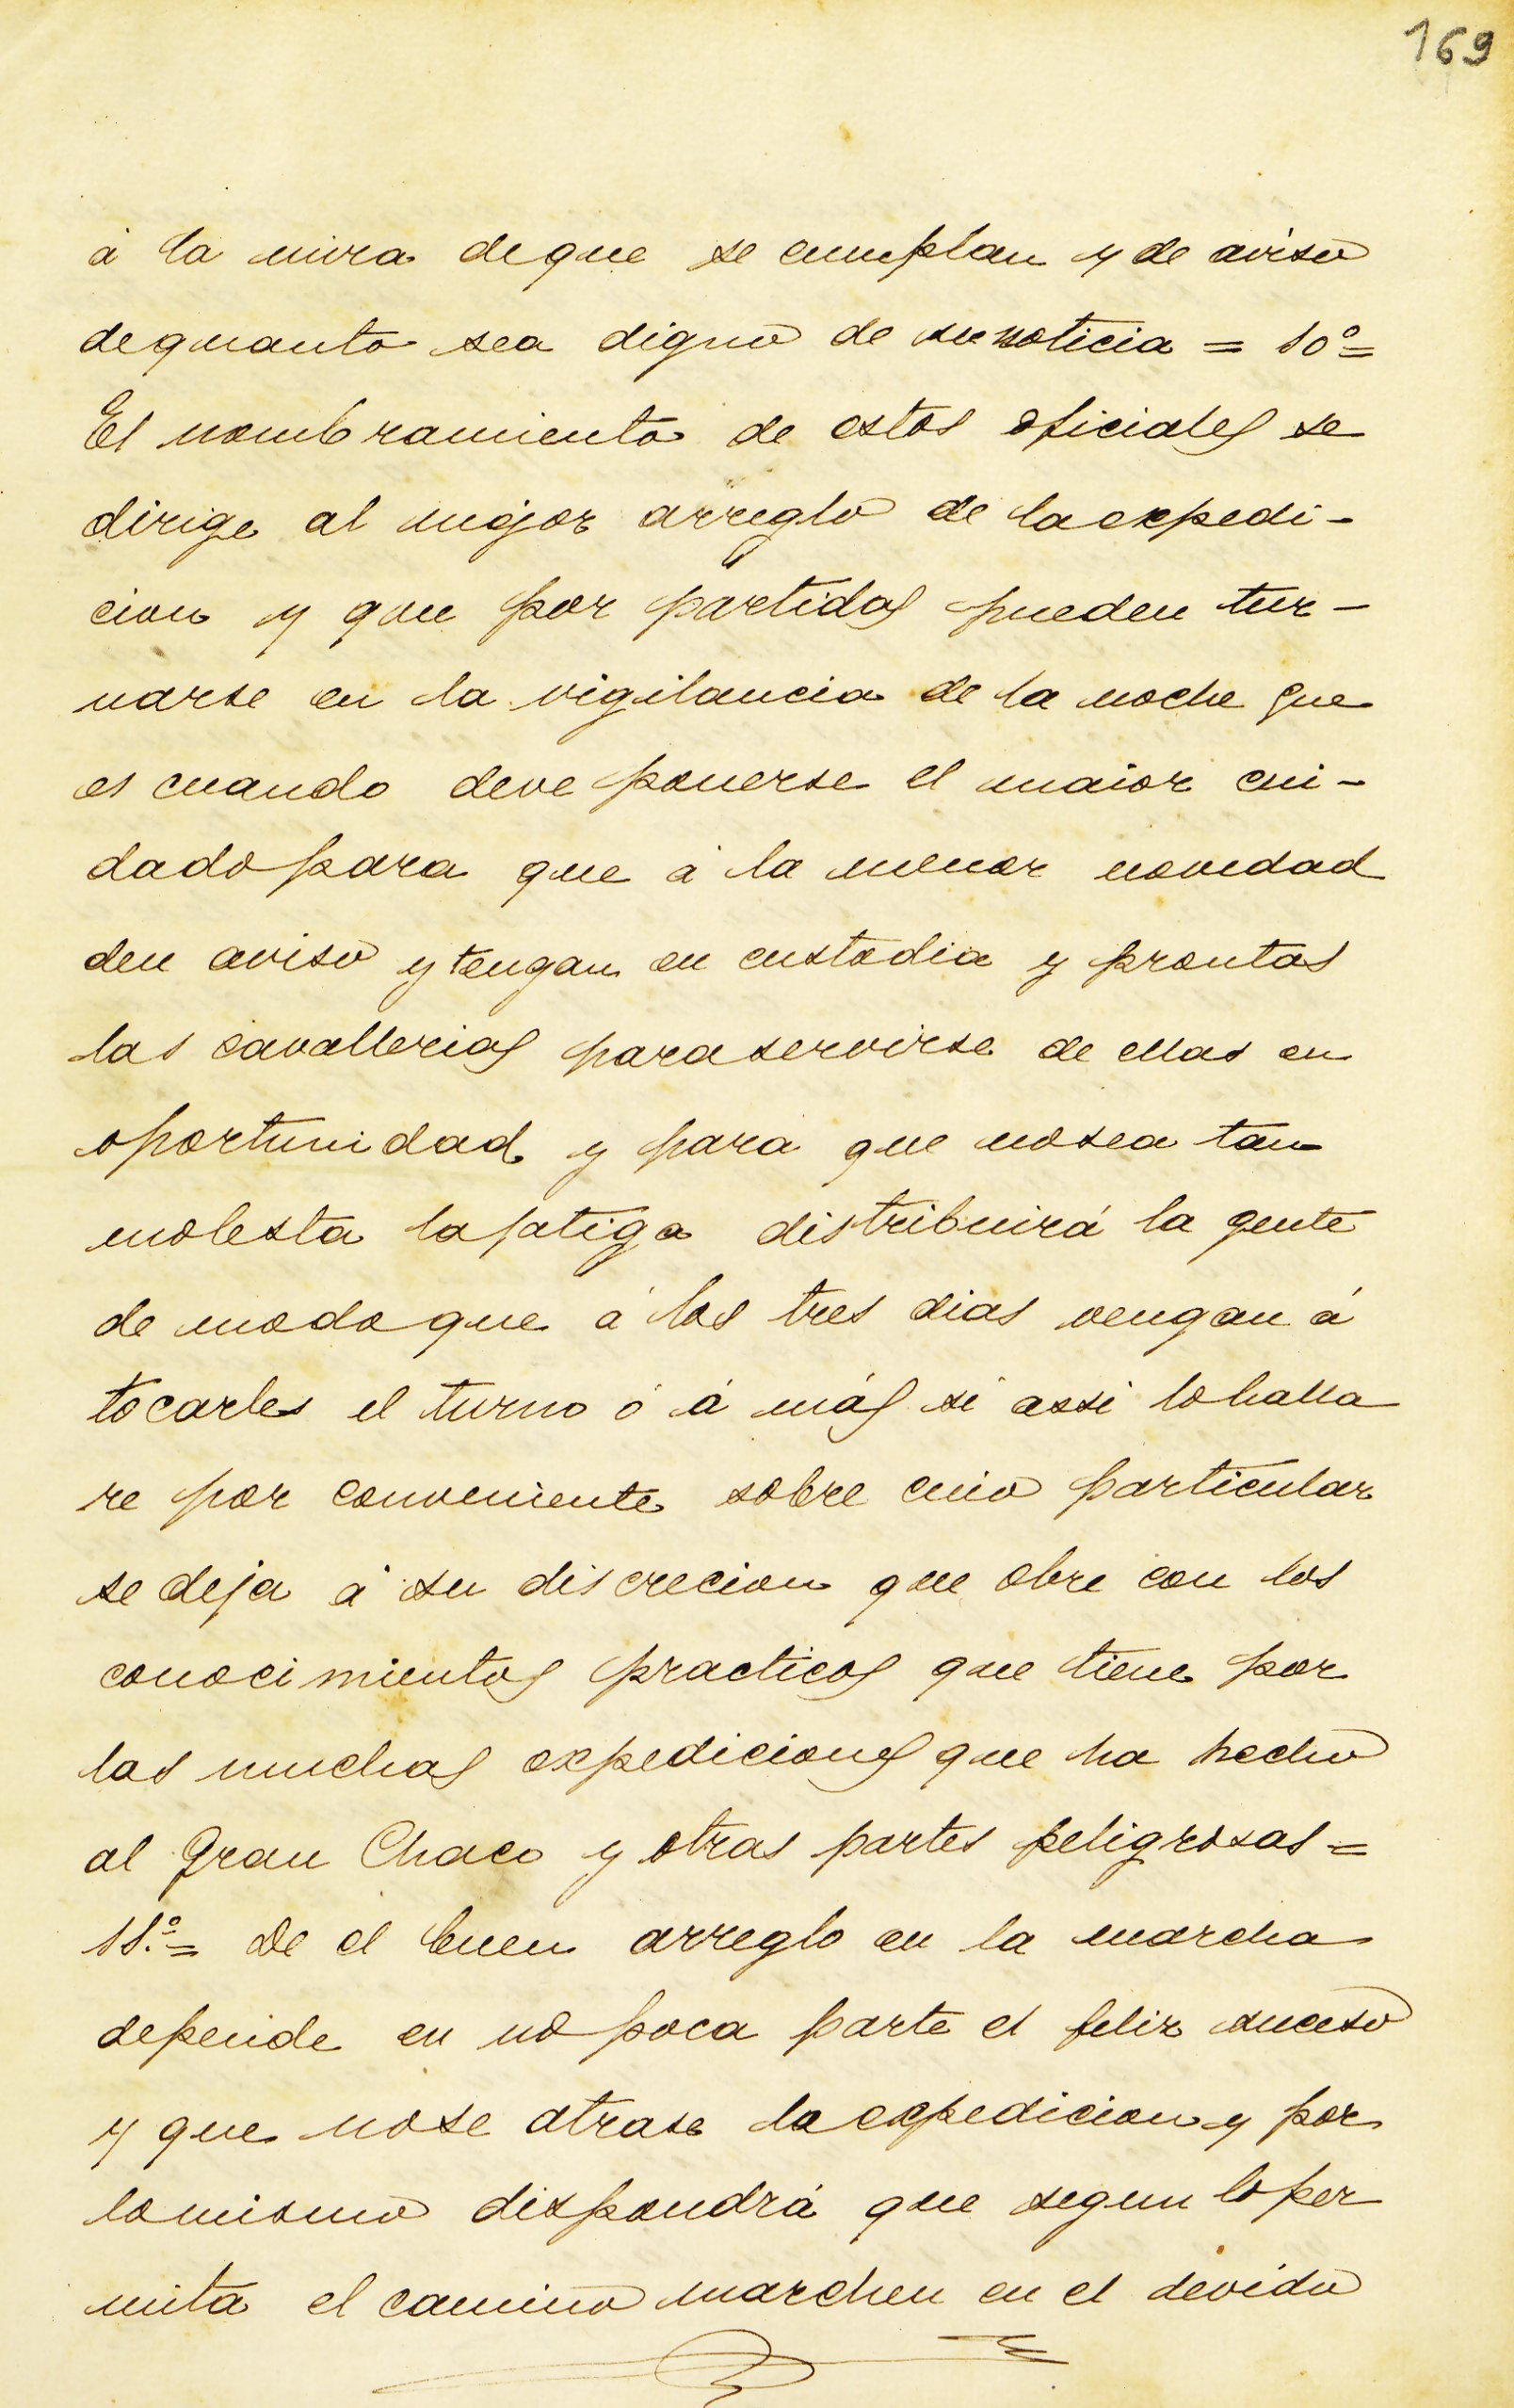 169
á la mira deque se cumplan y de aviso
dequanto sea digno de sunoticia = 10º=
El nombramiento de estos oficiales se
dirige al mejor arreglo de laexpedi-
cion y que por partidas pueden tur-
narse en la vigilancia de la noche que
es cuando deve ponerse el maior cui-
dado para que á la menor novedad
den aviso y tengan en custodia y prontas
las cavallerias paraservirse de ellas en
oportunidad y para que nosea tan
molesta lafatiga distribuirá la gente
de modo que á los tres dias vengan á
tocarles el turno ó á más si assi lohalla
re por conveniente sobre cuio particular
se deja á su discrecion que obre con los
conocimientos practicos que tiene por
las muchas expediciones que ha hecho
al Gran Chaco y otras partes peligrosas=
11.º= De el buen arreglo en la marcha
depende en no poca parte el feliz suceso
y que nose atrase laexpedicion y por
lomismo dispondrá que segun loper
mita el camino marchen en el devido